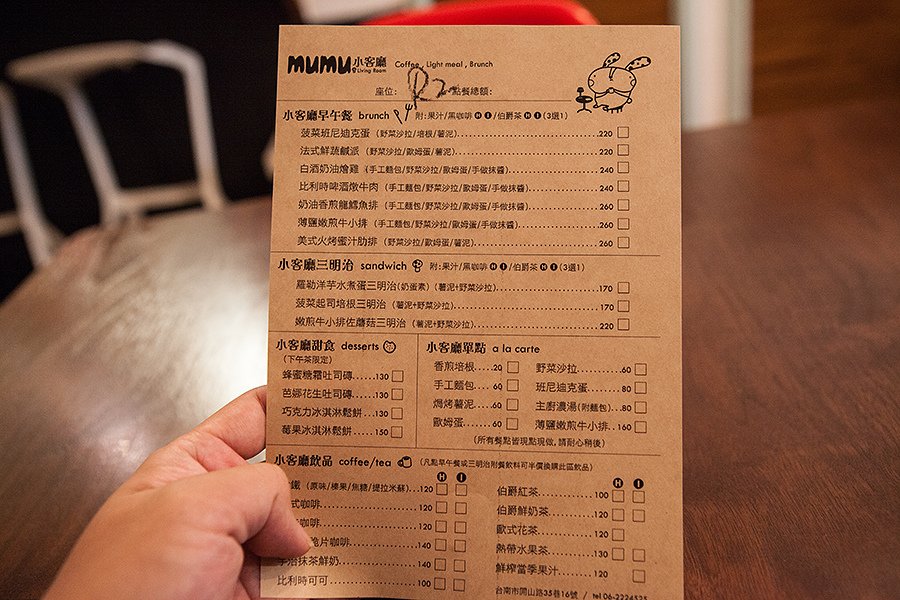 mumu 小客廳 Living Room Coffee , Light meal , Brunch
座位: R2 點餐總額:
小客廳早午餐 brunch 附:果汁/黑咖啡 H I /伯爵茶 H I (3選1)
菠菜班尼迪克蛋 (野菜沙拉/培根/薯泥) 220
法式鮮蔬鹹派 (野菜沙拉/歐姆蛋/薯泥) 220
白酒奶油燴雞 (手工麵包/野菜沙拉/歐姆蛋/手做抹醬) 240
比利時啤酒燉牛肉 (手工麵包/野菜沙拉/歐姆蛋/手做抹醬) 240
奶油香煎龍鱈魚排 (手工麵包/野菜沙拉/歐姆蛋/手做抹醬) 260
薄鹽嫩煎牛小排 (手工麵包/野菜沙拉/歐姆蛋/手做抹醬) 260
美式火烤蜜汁肋排 (野菜沙拉/歐姆蛋/薯泥) 260
小客廳三明治 sandwich 附:果汁/黑咖啡 H I /伯爵茶 H I (3選1)
羅勒洋芋水煮蛋三明治(奶蛋素) (薯泥+野菜沙拉) 170
菠菜起司培根三明治 (薯泥+野菜沙拉) 170
嫩煎牛小排佐蘑菇三明治 (薯泥+野菜沙拉) 220
小客廳甜食 desserts
(下午茶限定)
蜂蜜糖霜吐司磚 130
芭娜花生吐司磚 130
巧克力冰淇淋鬆餅 130
莓果冰淇淋鬆餅 150
小客廳單點 a la carte
香煎培根 20
手工麵包 60
焗烤薯泥 60
歐姆蛋 60
野菜沙拉 60
班尼迪克蛋 80
主廚濃湯(附麵包) 80
薄鹽嫩煎牛小排 160
(所有餐點皆現點現做,請耐心稍後)
小客廳飲品 coffee/tea (凡點早午餐或三明治附餐飲料可半價換購此區飲品)
H I
鐵 (原味/榛果/焦糖/提拉米蘇) 120
式咖啡 120
咖啡 120
脆片咖啡 140
宇治抹茶鮮奶 140
比利時可可 100
H I
伯爵紅茶 100
伯爵鮮奶茶 120
歐式花茶 120
熱帶水果茶 130
鮮榨當季果汁 120
台南市開山路35巷16號 / tel 06-2224525